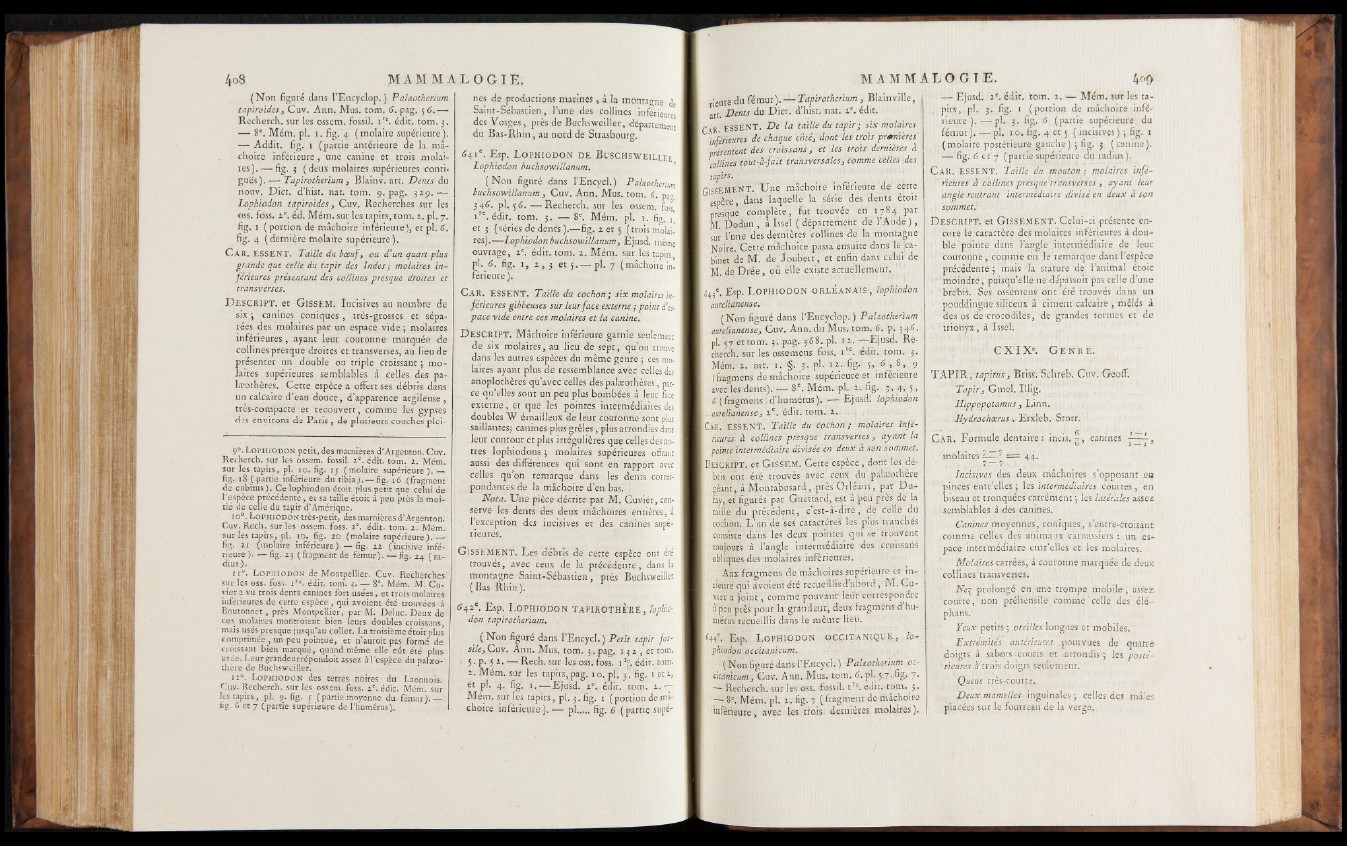 408 MAMMALOGIE.
(Non figuré dans l'Encyclop.) Palaeotherium
tapiroides, Cuv. Ann. Mus. tom. 6. pag. 56.—
Recherch. sur les ossem. fossil. 1re. édit. tom. 3.
— 8e. Mém. pl. 1. fig. 4 (molaire supérieure).
— Addit. fig. 1 (partie antérieure de la mâ-
choire inférieure, une canine et trois molai-
res). — fig. 3 (deux molaires supérieures conti-
guës). — Tapirotherium, Blainv. art. Dents du
nouv. Dict. d'hist. nat. tom. 9. pag. 329. —
Lophiodon tapiroides, Cuv. Recherches sur les
oss. foss. 2e. éd. Mém. sur les tapirs, tom. 2. pl. 7.
fig. 1 (portion de mâchoire inférieure), et pl. 6.
fig. 4 (dernière molaire supérieure).
CAR. ESSENT. Taille du bœuf, ou d'un quart plus
grande que celle du tapir des Indes; molaires in-
férieures présentant des collines presque droites et
transverses.
DESCRIPT. et GISSEM. Incisives au nombre de
six; canines coniques, très-grosses et sépa-
rées des molaires par un espace vide; molaires
inférieures, ayant leur couronne marquée de
collines presque droites et transverses, au lieu de
présenter un double ou triple croissant; mo-
laires supérieures semblables à celles des pa-
læothères. Cette espèce a offert ses débris dans
un calcaire d'eau douce, d'apparence argileuse,
très-compacte et recouvert, comme les gypses
des environs de Paris, de plusieurs couches pléi-
9°. LOPHIODON petit, des marnières d'Argenton. Cuv.
Recherch. sur les ossem. fossil. 2e. édit. tom. 2. Mém.
sur les tapirs, pl. 10. fig. 15 (molaire supérieure). —
fig. 18 (partie inférieure du tibia). — fig. 16 (fragment
de cubitus). Ce lophiodon étoit plus petit que celui de
l'espèce précédente, et sa taille étoit à peu près la moi-
tié de celle du tapir d'Amérique.
10°. LOPHIODON très-petit, des marnières d'Argenton.
Cuv. Rech. sur les ossem. foss. 2e. édit. tom. 2. Mém.
sur les tapirs, pl. 10. fig. 20 (molaire supérieure). —
fig. 21 (molaire inférieure). — fig. 22 (incisive infé-
rieure). — fig. 23 (fragment de fémur). — fig. 24 (ra-
dius).
11°. LOPHIODON de Montpellier. Cuv. Recherches
sur les oss. foss. 1re. édit. tom. 3. — 8e. Mém. M. Cu-
vier a vu trois dents canines fort usées, et trois molaires
inférieures de cette espèce, qui avoient été trouvées à
Boutonnet, près Montpellier, par M. Deluc. Deux de
ces molaires montroient bien leurs doubles croissans,
mais usés presque jusqu'au collet. La troisième étoit plus
comprimée, un peu pointue, et n'auroit pas formé de
croissant bien marqué, quand même elle eût été plus
usée. Leur grandeur répondoit assez à l'espèce du palæo-
thère de Buchsweiller.
12°. LOPHIODON des terres noires du Laonnois.
Cuv. Recherch. sur les ossem. foss. 2e. édit. Mém. sur
les tapirs, pl. 9. fig. 5 (partie moyenne du fémur). —
fig. 6 et 7 (partie supérieure de l'humérus).
nes de productions marines, à la montagne de
Saint-Sébastien, l'une des collines inférieures
des Vosges, près de Buchsweiller, département
du Bas-Rhin, au nord de Strasbourg.
641e. Esp. LOPHIODON DE BUSCHSWEILLER,
Lophiodon buchsowillanum.
(Non figuré dans l'Encycl.) Palaeotherium
buchsowillanum, Cuv. Ann. Mus. tom. 6. pag.
346. pl. 56. — Recherch. sur les ossem. foss.
1re. édit. tom. 3. — 8e. Mém. pl. 1. fig. 1,
et 3 (séries de dents).—fig. 2 et 5 (trois molai-
res).—Lophiodon buchsowillanum, Ejusd. même
ouvrage, 2e. édit. tom. 2. Mém. sur les tapirs,
pl. 6. fig. 1, 2, 3 et 5.—pl. 7 (mâchoire in-
férieure).
CAR. ESSENT. Taille du cochon; six molaires in-
férieures gibbeuses sur leur face externe; point d'es-
pace vide entre ces molaires et la canine.
DESCRIPT. Mâchoire inférieure garnie seulement
de six molaires, au lieu de sept, qu'on trouve
dans les autres espèces du même genre; ces mo-
laires ayant plus de ressemblance avec celles des
anoplothères qu'avec celles des palæothères, par-
ce qu'elles sont un peu plus bombées à leur face
externe, et que les pointes intermédiaires des
doubles W émailleux de leur couronne sont plus
saillantes; canines plus grêles, plus arrondies dans
leur contour et plus irrégulières que celles des au-
tres lophiodons; molaires supérieures offrant
aussi des différences qui sont en rapport avec
celles qu'on remarque dans les dents corres-
pondantes de la mâchoire d'en bas.
Nota. Une pièce décrite par M. Cuvier, con-
serve les dents des deux mâchoires entières, à
l'exception des incisives et des canines supé-
rieures.
GISSEMENT. Les débris de cette espèce ont été
trouvés, avec ceux de la précédente, dans la
montagne Saint-Sébastien, près Buchsweiller
(Bas-Rhin).
642e. Esp. LOPHIODON TAPIROTHÈRE, lophio-
don tapirotherium.
(Non figuré dans l'Encycl.) Petit tapir fos-
sile, Cuv. Ann. Mus. tom. 3. pag. 132, et tom.
5. p. 52. — Rech. sur les oss. foss. 1re. édit. tom.
2. Mém. sur les tapirs, pag. 10. pl. 3. fig. 1 et 2,
et pl. 4. fig. 1. — Ejusd. 2e. édit. tom. 2. —
Mém. sur les tapirs, pl. 3. fig. 1 (portion de mâ-
choire inférieure). — pl..... fig. 6 (partie supé-
MAMMALOGIE. 409
rieure du fémur).— Tapirotherium, Blainville,
art. Dents du Dict. d'hist. nat. 2e. édit.
CAR. ESSENT. De la taille du tapir; six molaires
inférieures de chaque côté, dont les trois premières
présentent des croissans, et les trois dernières à
collines tout-à-fait transversales, comme celles des
tapirs.
GISSEMENT. Une mâchoire inférieure de cette
espèce, dans laquelle la série des dents étoit
presque complète, fut trouvée en 1784 par
M. Dodun, à Issel (département de l'Aude),
sur l'une des dernières collines de la montagne
Noire. Cette mâchoire passa ensuite dans le ca-
binet de M. de Joubert, et enfin dans celui de
M. de Drée, où elle existe actuellement.
643e. Esp. LOPHIODON ORLÉANAIS, lophiodon
aurelianense.
(Non figuré dans l'Encyclop.) Palaeotherium
aurelianense, Cuv. Ann. du Mus. tom. 6. p. 346.
pl. 57 et tom. 3. pag. 368. pl. 12. — Ejusd. Re-
cherch. sur les ossemens foss. 1re. édit. tom. 3.
Mém. 2. art. 1. §. 3. pl. 12. fig. 5, 6, 8, 9
(fragmens de mâchoire supérieure et inférieure
avec les dents). — 8e. Mém. pl. 2. fig. 3, 4, 5,
6 (fragmens d'humérus). — Ejusd. lophiodon
aurelianense, 2e. édit. tom. 2.
CAR. ESSENT. Taille du cochon; molaires infé-
rieures à collines presque transverses, ayant la
pointe intermédiaire divisée en deux à son sommet.
DESCRIPT. et GISSEM. Cette espèce, dont les dé-
bris ont été trouvés avec ceux du palæothère
géant, à Montabusard, près Orléans, par Du-
fay, et figurés par Guettard, est à peu près de la
taille du précédent, c'est-à-dire, de celle du
cochon. L'un de ses caractères les plus tranchés
consiste dans les deux pointes qui se trouvent
toujours à l'angle intermédiaire des croissans
obliques des molaires inférieures.
Aux fragmens de mâchoires supérieure et in-
férieure qui avoient été recueillis d'abord, M. Cu-
vier a joint, comme pouvant leur correspondre
à peu près pour la grandeur, deux fragmens d'hu-
mérus recueillis dans le même lieu.
644e. Esp. LOPHIODON OCCITANIQUE, lo-
phiodon occitanicum.
(Non figuré dans l'Encycl.) Palaeotherium oc-
citanicum, Cuv. Ann. Mus. tom. 6. pl. 57. fig. 7.
— Recherch. sur les oss. fossil. 1re. édit. tom. 3.
— 8e. Mém. pl. 2. fig. 7 (fragment de mâchoire
inférieure, avec les trois dernières molaires).
— Ejusd. 2e. édit. tom. 2. — Mém. sur les ta-
pirs, pl. 3. fig. 1 (portion de mâchoire infé-
rieure). — pl. 3. fig. 6 (partie supérieure du
fémur). — pl. 10. fig. 4 et 5 (incisives); fig. 1
(molaire postérieure gauche); fig. 3 (canine).
— fig. 6 et 7 (partie supérieure du radius).
CAR. ESSENT. Taille du mouton; molaires infé-
rieures à collines presque transverses, ayant leur
angle rentrant intermédiaire divisé en deux à son
sommet.
DESCRIPT. et GISSEMENT. Celui-ci présente en-
core le caractère des molaires inférieures à dou-
ble pointe dans l'angle intermédiaire de leur
couronne, comme on le remarque dans l'espèce
précédente; mais la stature de l'animal étoit
moindre, puisqu'elle ne dépassoit pas celle d'une
brebis. Ses ossemens ont été trouvés dans un
pouddingue siliceux à ciment calcaire, mêlés à
des os de crocodiles, de grandes tortues et de
trionyx, à Issel.
CXIXe. GENRE.
TAPIR, tapirus, Briss. Schreb. Cuv. Geoff.
Tapir, Gmel. Illig.
Hippopotamus, Linn.
Hydrochœrus, Erxleb. Storr.
CAR. Formule dentaire: incis. 6/6, canines 1—1/1—1,
molaires 7—7/7—7 = 44.
Incisives des deux mâchoires s'opposant en
pinces entr'elles; les intermédiaires courtes, en
biseau et tronquées carrément; les latérales assez
semblables à des canines.
Canines moyennes, coniques, s'entre-croisant
comme celles des animaux carnassiers: un es-
pace intermédiaire entr'elles et les molaires.
Molaires carrées, à couronne marquée de deux
collines transverses.
Nez prolongé en une trompe mobile, assez
courte, non préhensile comme celle des élé-
phans.
Yeux petits; oreilles longues et mobiles.
Extrémités antérieures pourvues de quatre
doigts à sabots courts et arrondis; les posté-
rieures à trois doigts seulement.
Queue très-courte.
Deux mamelles inguinales; celles des mâles
placées sur le fourreau de la verge.